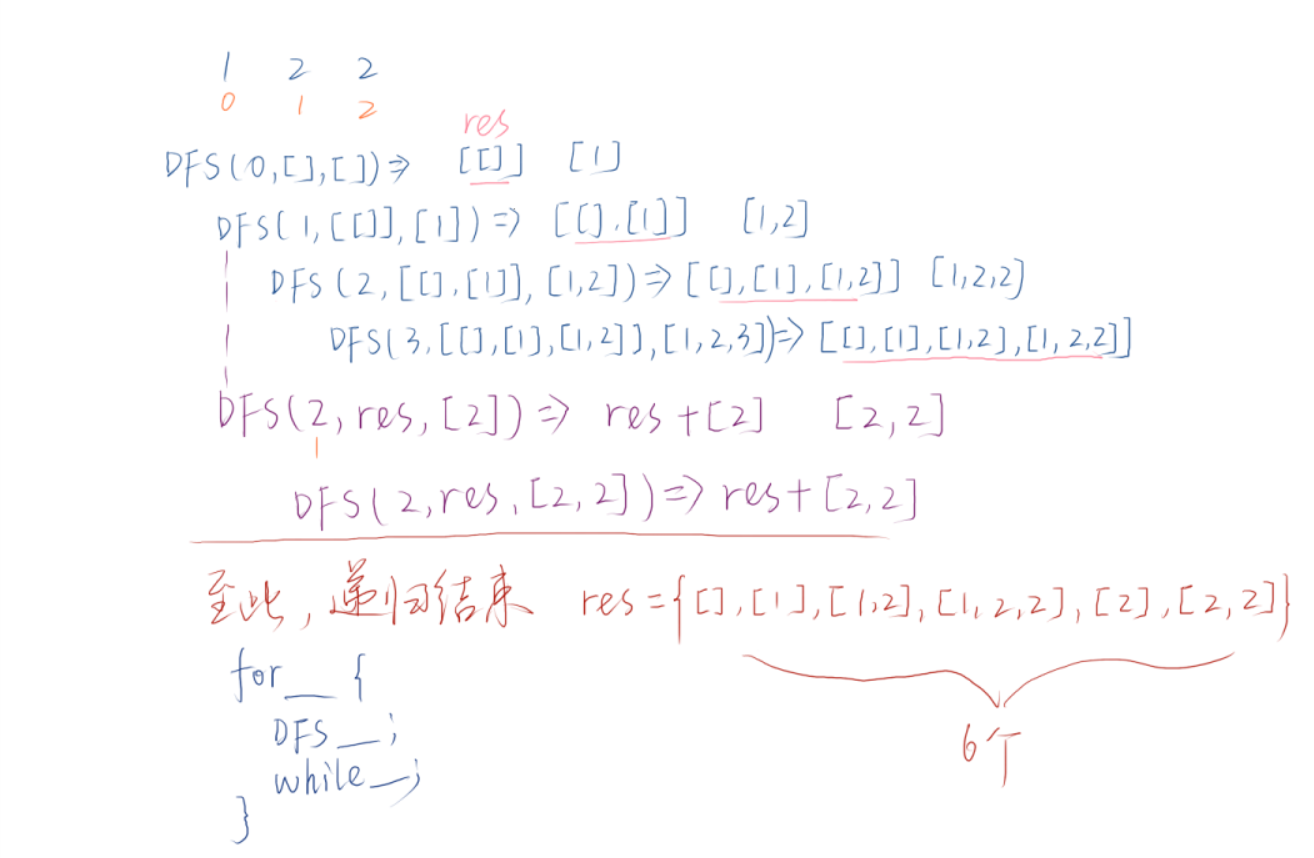 1 2 2
0 1 2
res
DFS(0,[],[])⇒ [[]] [1]
DFS(1,[[]],[1])⇒ [[],[1]] [1,2]
DFS(2,[[],[1]],[1,2])⇒[[],[1],[1,2]] [1,2,2]
DFS(3,[[],[1],[1,2]],[1,2,3])⇒[[],[1],[1,2],[1,2,2]]
DFS(2,res,[2])⇒ res+[2] [2,2]
1
DFS(2,res,[2,2])⇒res+[2,2]
至此,递归结束 res={[],[1],[1,2],[1,2,2],[2],[2,2]}
for__{
DFS__;
while__;
}
6个